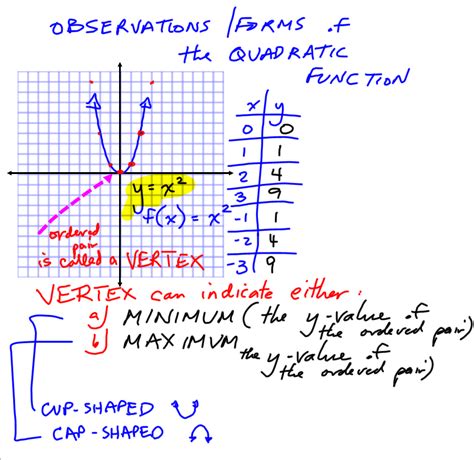 OBSERVATIONS / FORMS of
the QUADRATIC
FUNCTION
x y
0 0
1 1
2 4
3 9
-1 1
-2 4
-3 9
y = x²
f(x) = x²
ordered
pair
is called a VERTEX
VERTEX can indicate either:
a) MINIMUM (the y-value of
the ordered pair)
b) MAXIMUM the y-value of
the ordered pair)
CUP-SHAPED
CAP-SHAPED